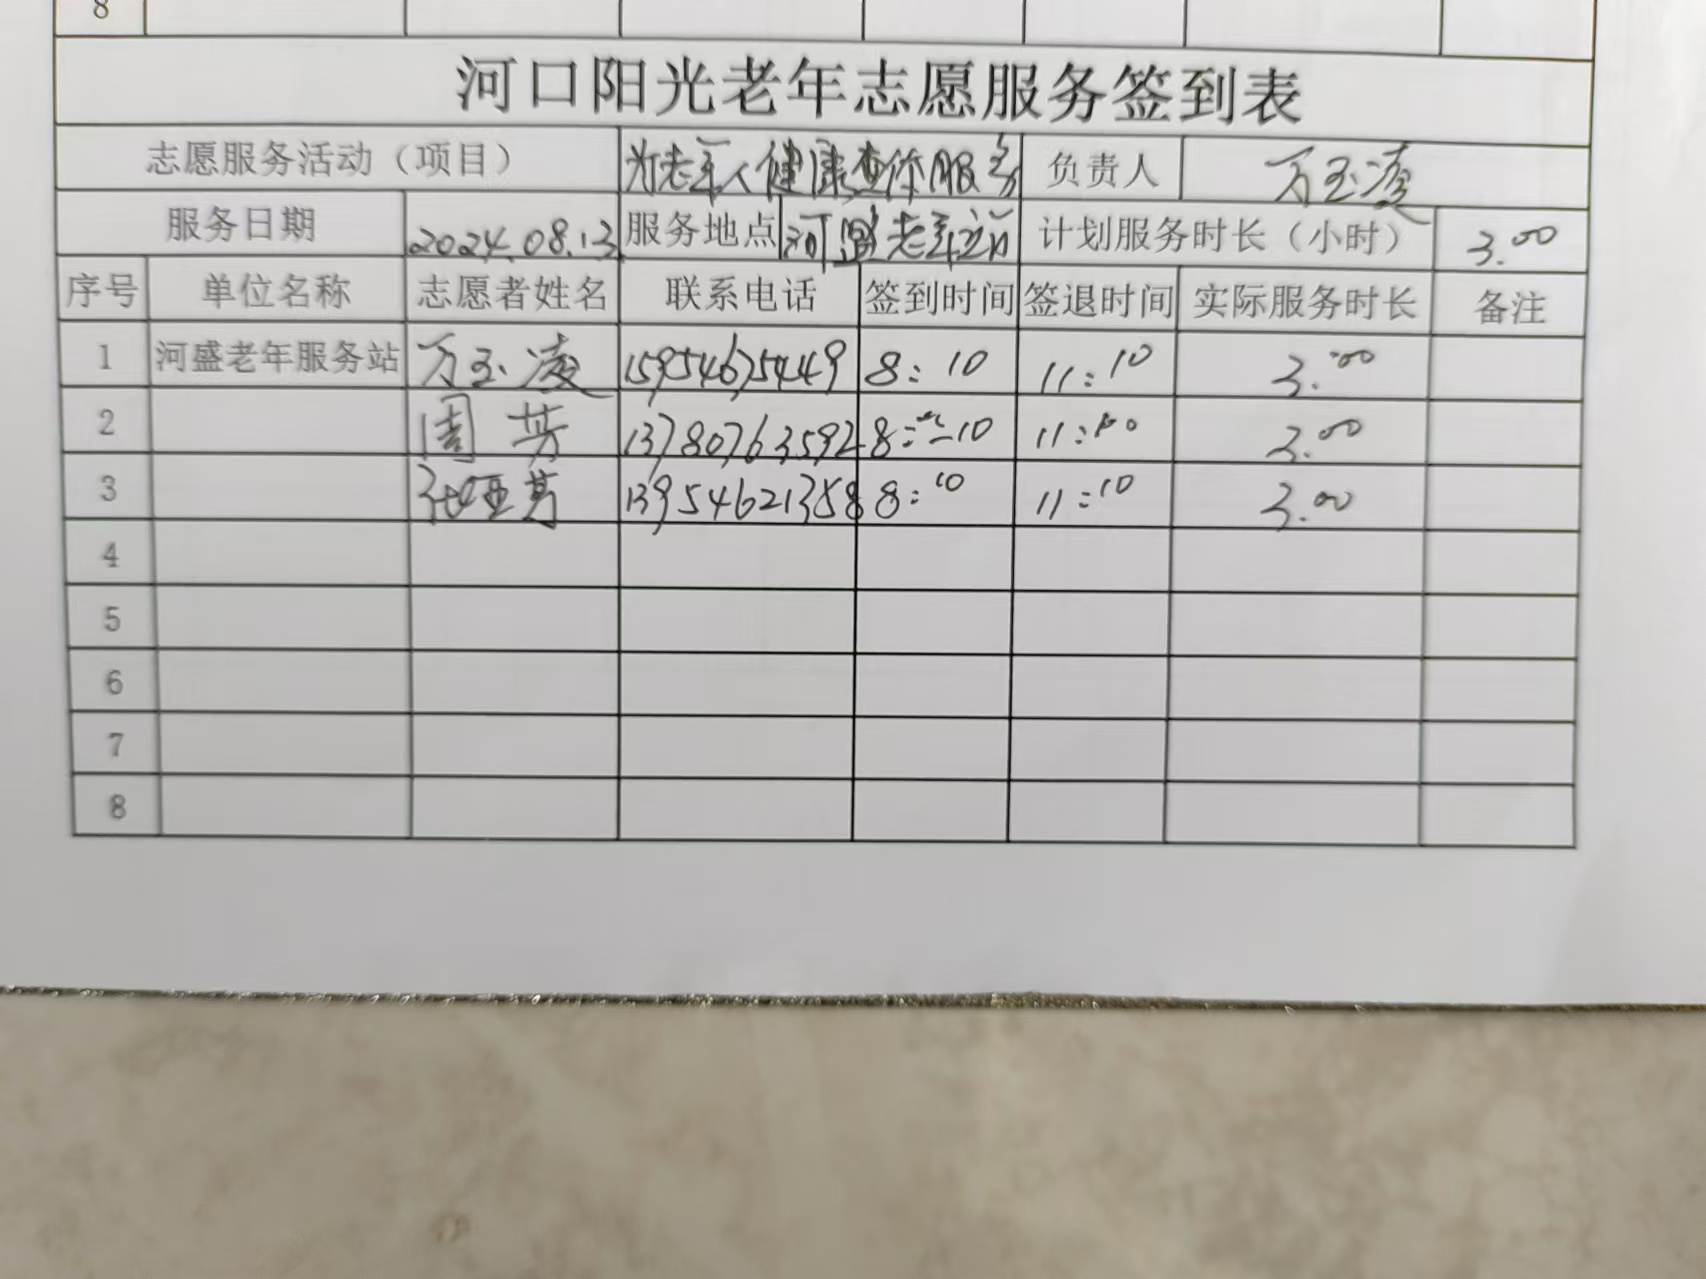 8
河口阳光老年志愿服务签到表
志愿服务活动（项目） 为老年人健康查体服务 负责人 万玉凌
服务日期 2024.08.13 服务地点 河盛老年站 计划服务时长（小时） 3.00
序号 单位名称 志愿者姓名 联系电话 签到时间 签退时间 实际服务时长 备注
1 河盛老年服务站 万玉凌 15954675449 8:10 11:10 3.00
2 周芳 13780763592 8:10 11:10 3.00
3 13954621358 8:10 11:10 3.00
4
5
6
7
8